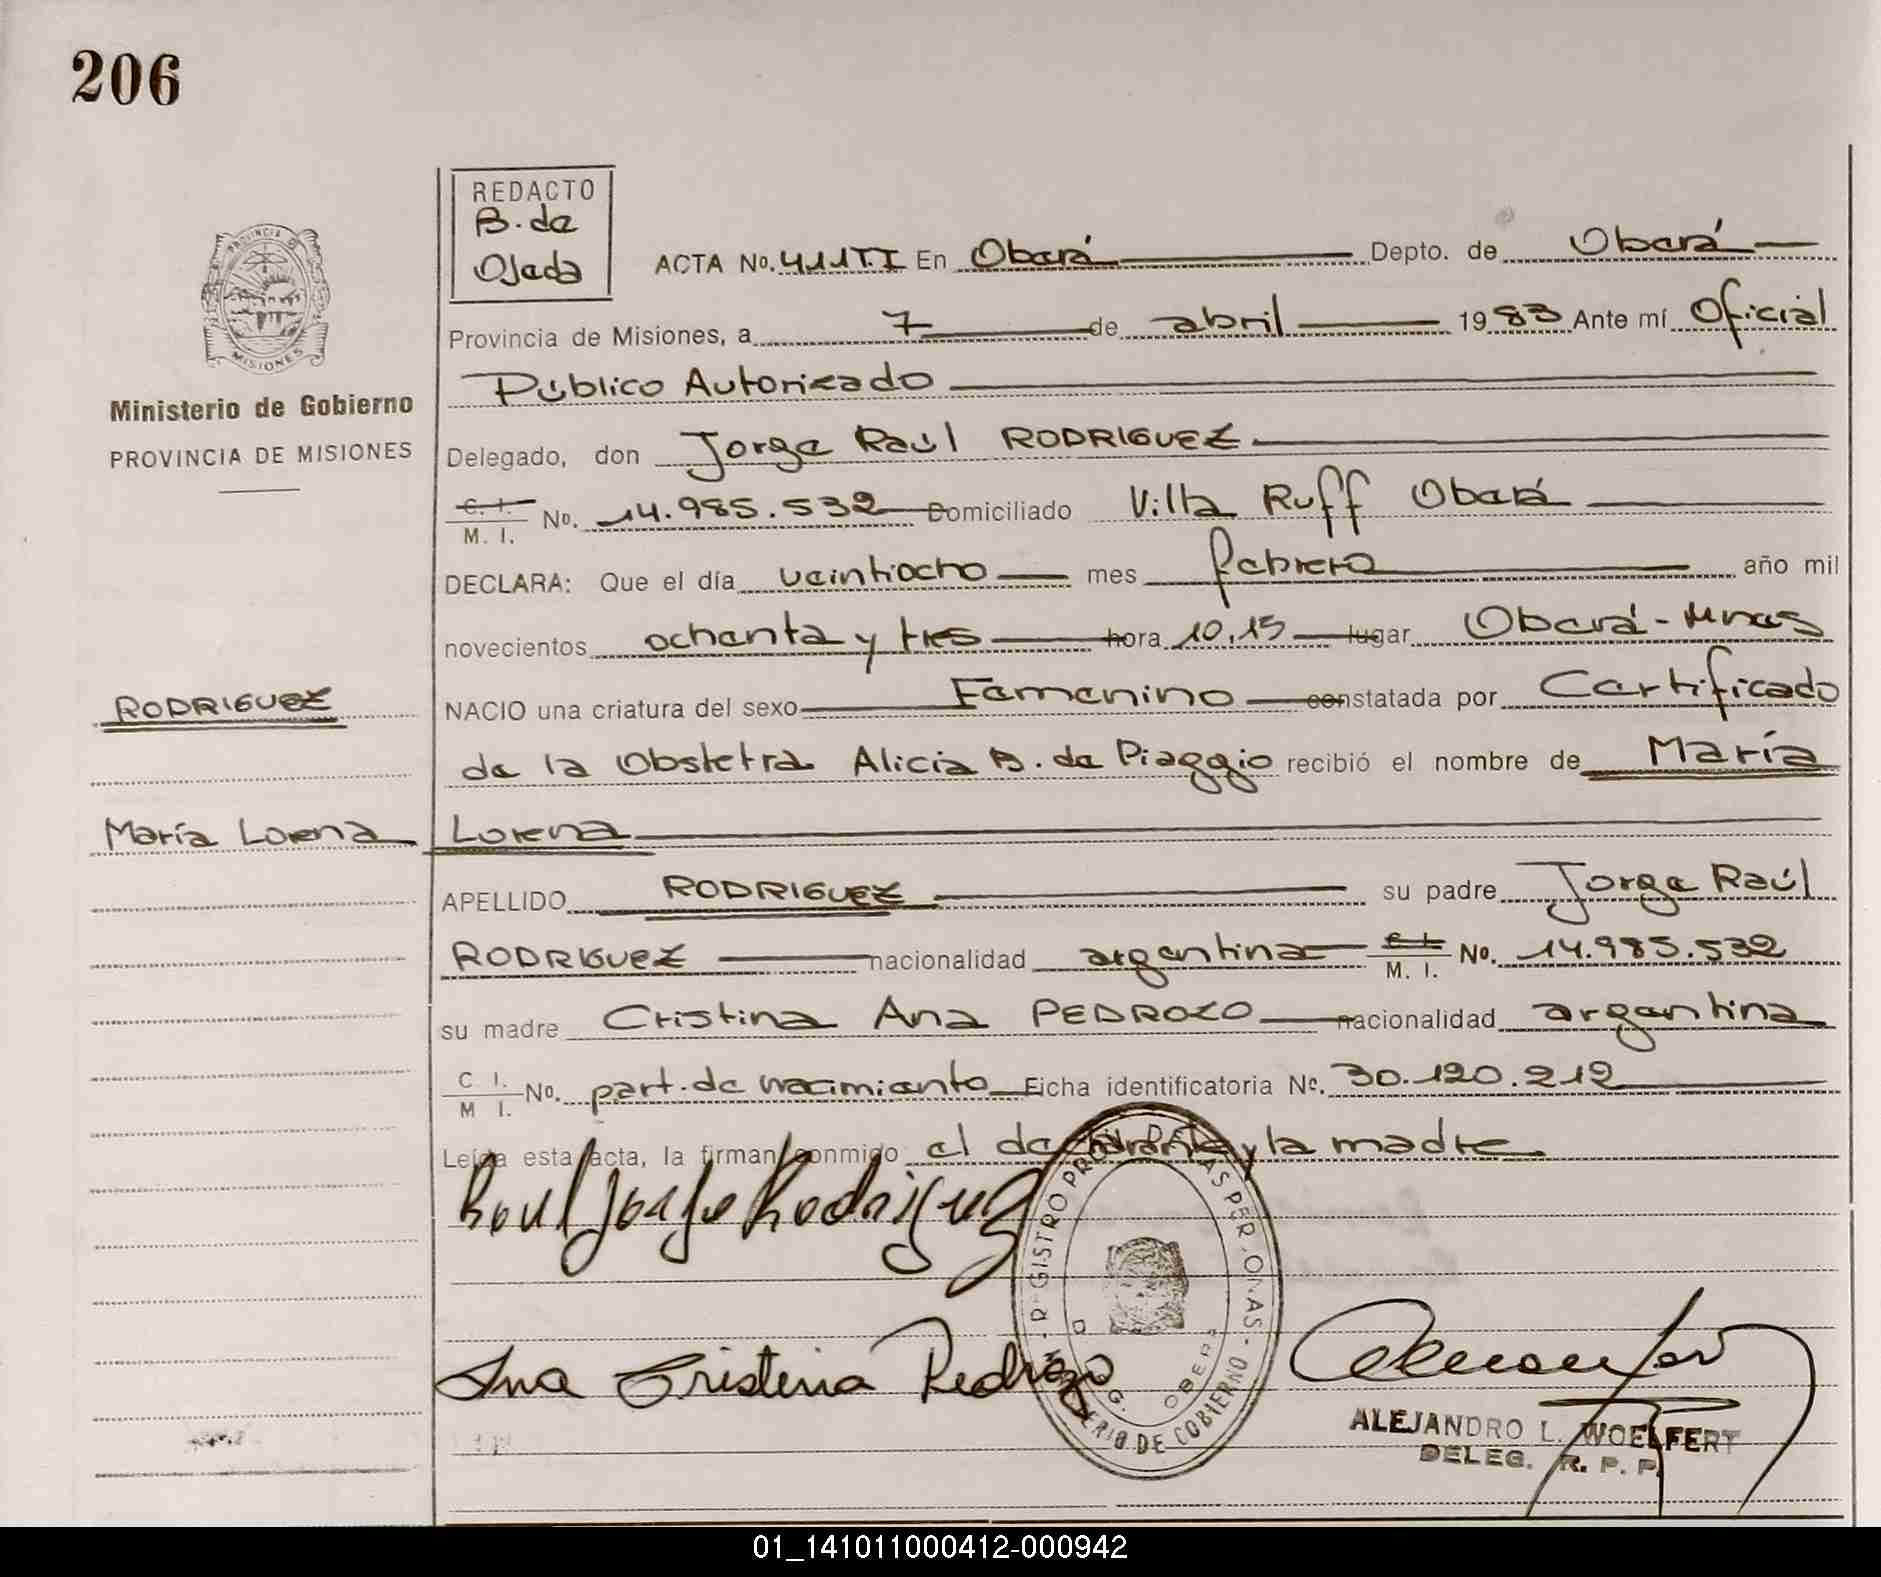 206
REDACTO
B. de
Ojeda
PROVINCIA DE
MISIONES
Ministerio de Gobierno
PROVINCIA DE MISIONES
ACTA No. 411T.I En Oberá Depto. de Oberá
Provincia de Misiones, a 7 de abril 1983 Ante mí Oficial
Público Autorizado
Delegado, don Jorge Raúl RODRIGUEZ
C. I.
M. I. No. 14.985.532 Domiciliado Villa Ruff Oberá
DECLARA: Que el día veintiocho mes febrero año mil
novecientos ochenta y tres hora 10,15 lugar Oberá - Mnes
RODRIGUEZ
NACIO una criatura del sexo Femenino constatada por Certificado
de la Obstetra Alicia B. de Piaggio recibió el nombre de María
María Lorena
Lorena
APELLIDO RODRIGUEZ su padre Jorge Raúl
RODRIGUEZ nacionalidad argentina C. I. M. I. No. 14.985.532
su madre Cristina Ana PEDROZO nacionalidad argentina
C I. M I. No. part. de nacimiento Ficha identificatoria No. 30.120.212
Leída esta acta, la firman conmigo el declarante y la madre.
Raul Jorge Rodriguez
Ana Cristina Pedrozo
OBERA
ALEJANDRO L. WOELFERT
DELEG. R. P. P.
01_141011000412-000942